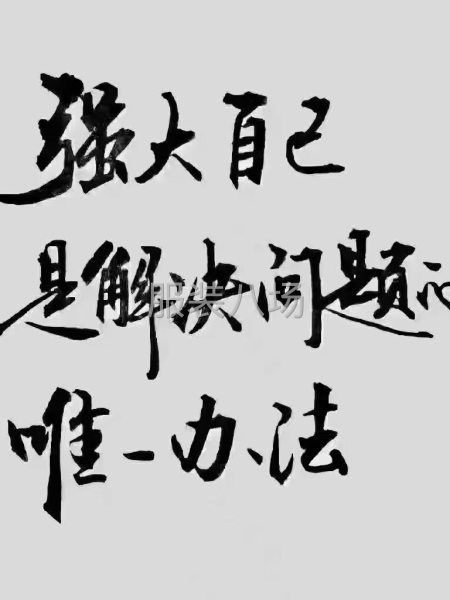 强大自己
是解决问题的
唯一办法
服装八场